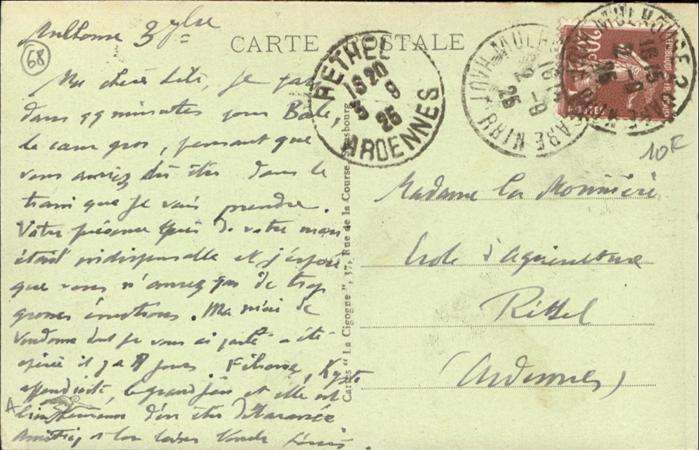 Mulhouse 3 7bre
68
CARTE POSTALE
Ma chère , je pars
dans 59 minutes pour Bâle,
le cœur gros, pensant que
vous auriez dû être dans le
train que je vais prendre.
Votre présence près de votre mari
était indispensable et j'espère
que vous n'aurez pas de trop
grosses émotions. Ma nièce de
Vendome dont je vous ai parlé a été
opérée il y a 8 jours Fibrome, Kyste
appendicite, le grand jeu et elle est
d'en être débarrassée
Amitiés
RETHEL
18 20
5 - 9
25
ARDENNES
MULHOUSE 2
GARE
HAUT RHIN
25
10F
Madame La Monnière
Ecole d'Agriculture
Réthel
(Ardennes)
Cartes "La Cigogne", 37, Rue de la Course, Strasbourg